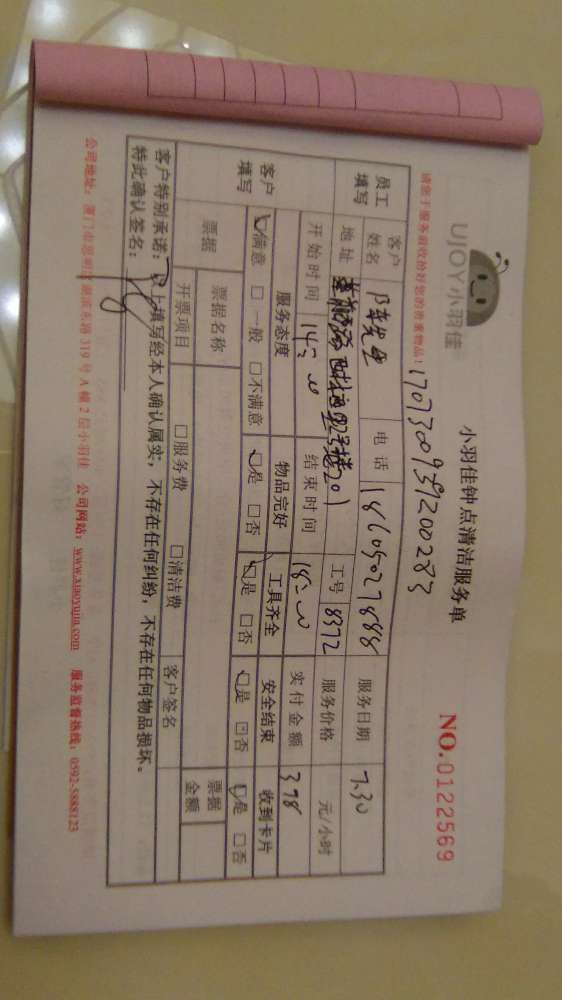 UJOY小羽佳
小羽佳钟点清洁服务单
NO.0122569
请您于服务前收拾好您的贵重物品!
17073009591200283
员工填写 客户姓名 陈先生 电话 18605027888 服务日期 7.30
地址 工号 8372 服务价格 元/小时
开始时间 14:00 结束时间 18:00 实付金额 378
客户填写 服务态度 物品完好 工具齐全 安全结束 收到卡片
☑满意 □一般 □不满意 ☑是 □否 ☑是 □否 ☑是 □否 ☑是 □否
票据 票据名称 票据金额
开票项目 □服务费 □清洁费 客户签名
客户特别承诺:以上填写经本人确认属实,不存在任何纠纷,不存在任何物品损坏。
特此确认签名:
公司地址:厦门市思明区湖滨东路319号A幢2层小羽佳 公司网站:www.xiaoyujia.com 服务监督热线:0592-5888123